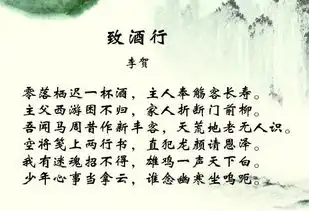 致酒行
李贺
零落栖迟一杯酒，主人奉觞客长寿。
主父西游困不归，家人折断门前柳。
吾闻马周昔作新丰客，天荒地老无人识。
空将笺上两行书，直犯龙颜请恩泽。
我有迷魂招不得，雄鸡一声天下白。
少年心事当拿云，谁念幽寒坐呜呃。